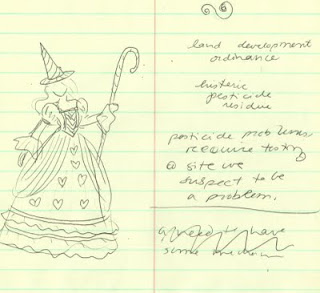 land development
ordinance
historic
pesticide
residue
pesticide problems
require testing
@ site we
suspect to be
a problem.
have
some